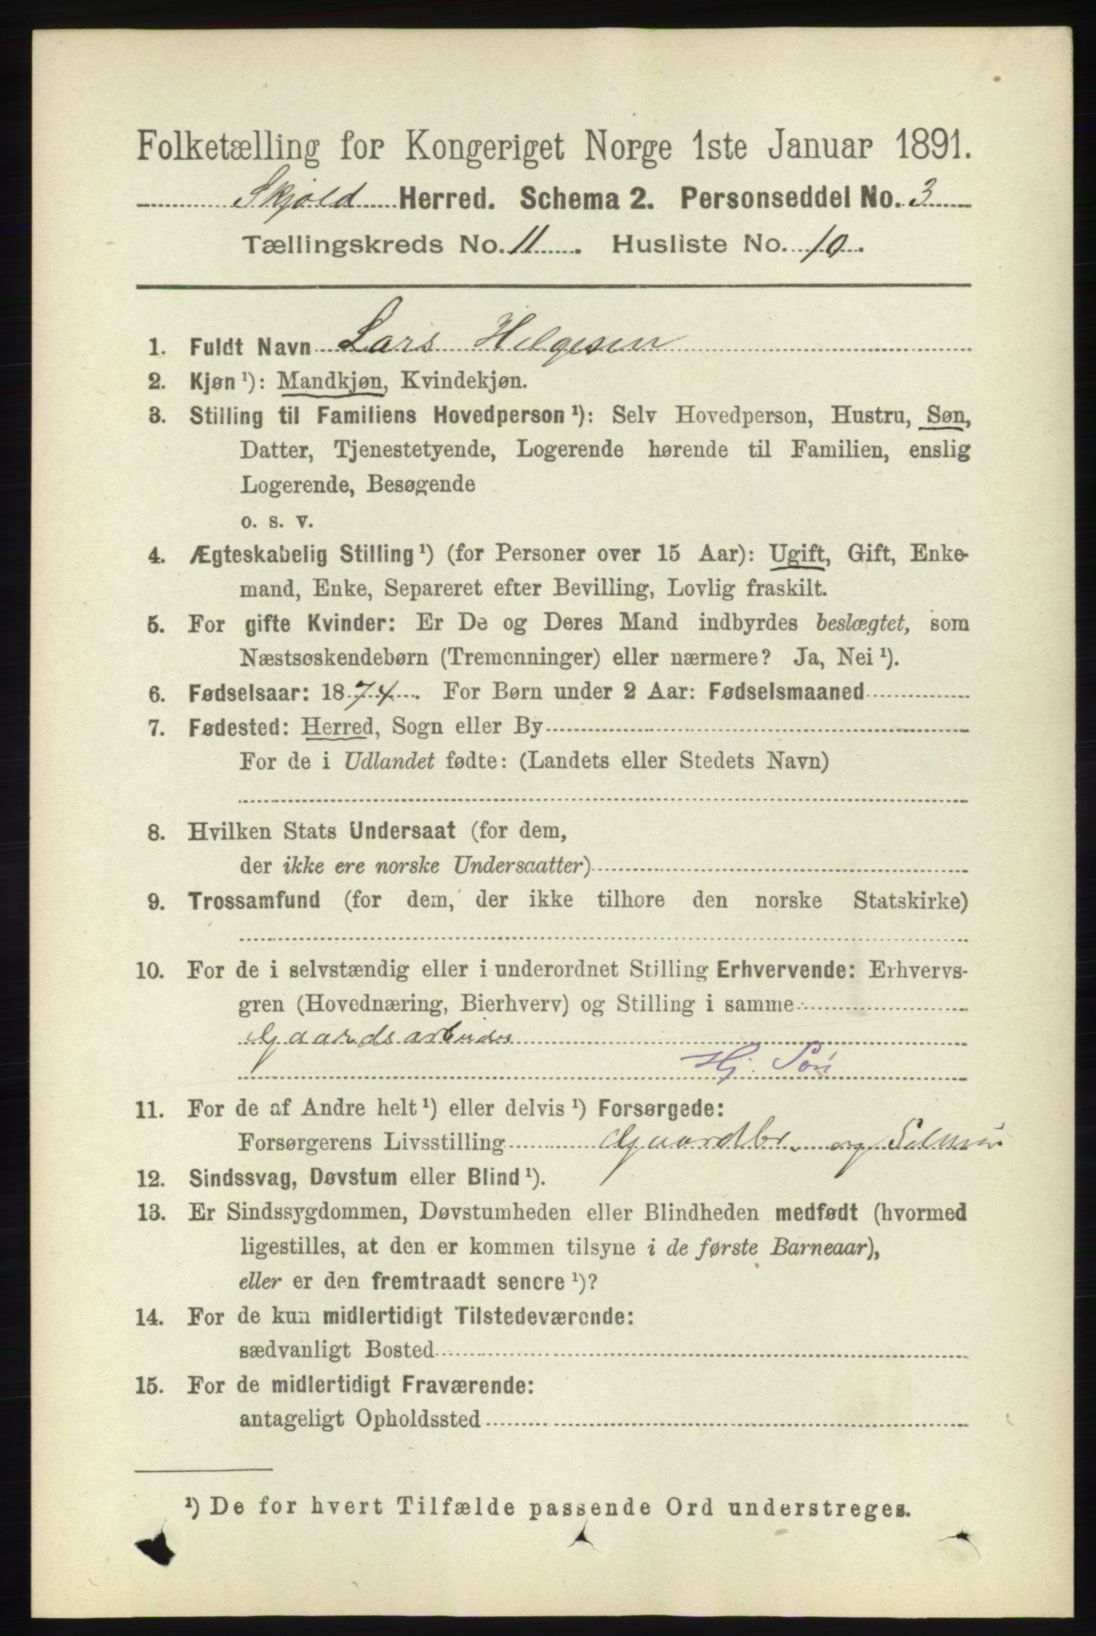 Folketælling for Kongeriget Norge 1ste Januar 1891.
Skjold Herred. Schema 2. Personseddel No. 3
Tællingskreds No. 11. Husliste No. 10.
1. Fuldt Navn Lars Helgesen
2. Kjøn ¹): Mandkjøn, Kvindekjøn.
3. Stilling til Familiens Hovedperson ¹): Selv Hovedperson, Hustru, Søn,
Datter, Tjenestetyende, Logerende hørende til Familien, enslig
Logerende, Besøgende
o. s. v.
4. Ægteskabelig Stilling ¹) (for Personer over 15 Aar): Ugift, Gift, Enke-
mand, Enke, Separeret efter Bevilling, Lovlig fraskilt.
5. For gifte Kvinder: Er De og Deres Mand indbyrdes beslægtet, som
Næstsøskendebørn (Tremenninger) eller nærmere? Ja, Nei ¹).
6. Fødselsaar: 1874. For Børn under 2 Aar: Fødselsmaaned
7. Fødested: Herred, Sogn eller By
For de i Udlandet fødte: (Landets eller Stedets Navn)
8. Hvilken Stats Undersaat (for dem,
der ikke ere norske Undersaatter)
9. Trossamfund (for dem, der ikke tilhøre den norske Statskirke)
10. For de i selvstændig eller i underordnet Stilling Erhvervende: Erhvervs-
gren (Hovednæring, Bierhverv) og Stilling i samme
Gaardsarbeider
Hj. Søn
11. For de af Andre helt ¹) eller delvis ¹) Forsørgede:
Forsørgerens Livsstilling Gaardbr. og
12. Sindssvag, Døvstum eller Blind ¹).
13. Er Sindssygdommen, Døvstumheden eller Blindheden medfødt (hvormed
ligestilles, at den er kommen tilsyne i de første Barneaar),
eller er den fremtraadt senere ¹)?
14. For de kun midlertidigt Tilstedeværende:
sædvanligt Bosted
15. For de midlertidigt Fraværende:
antageligt Opholdssted
¹) De for hvert Tilfælde passende Ord understreges.